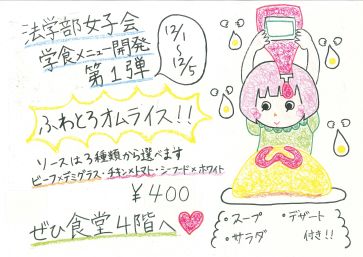 法学部女子会
学食メニュー開発
第1弾
12/1
〜
12/5
ふわとろオムライス!!
ソースは3種類から選べます
ビーフ×デミグラス・チキン×トマト・シーフード×ホワイト
¥400
ぜひ食堂4階へ
・スープ ・デザート
・サラダ 付き!!